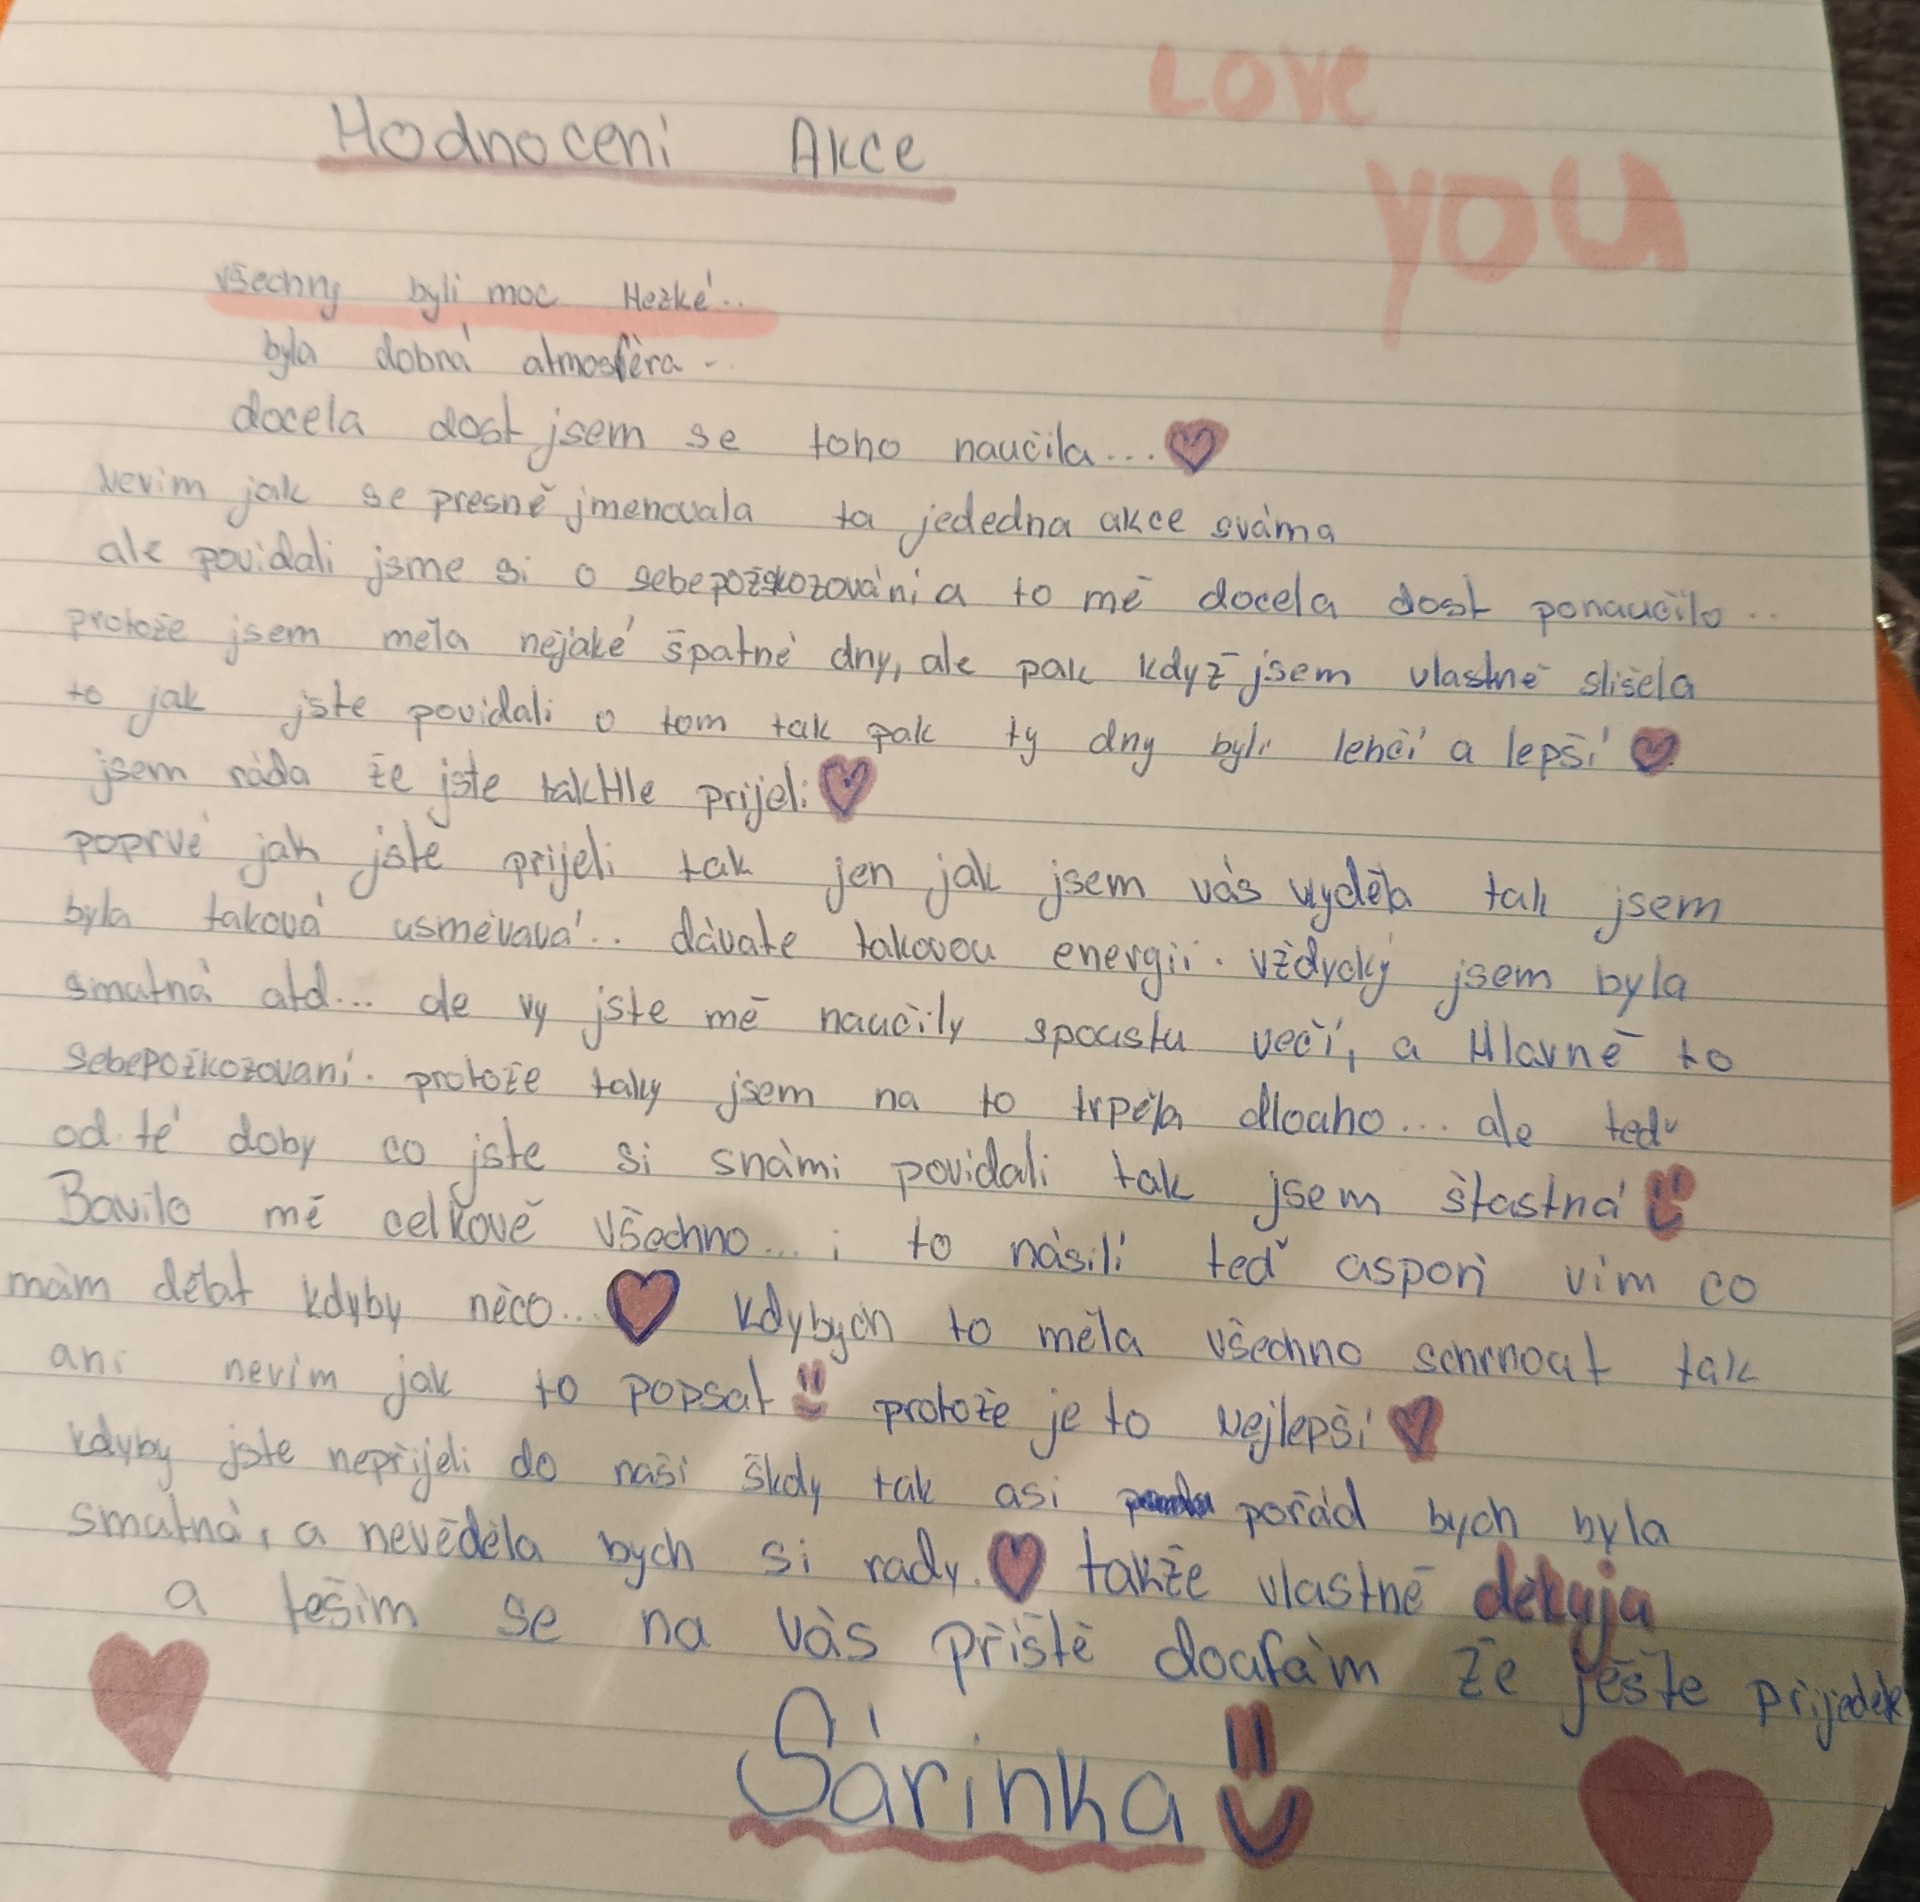 Love
you
Hodnoceni Akce
všechny byli moc Hezké..
byla dobrá atmosféra..
docela dost jsem se toho naučila...
Nevim jak se presně jmenovala ta jededna akce sváma
ale povidali jsme si o sebepožskozováni a to mě docela dost ponaučilo..
protože jsem měla nějaké špatné dny, ale pak když jsem vlastně slišela
to jak jste povidali o tom tak pak ty dny byli lehčí a lepší
jsem ráda že jste takHle prijeli
poprvé jak jste přijeli tak jen jak jsem vás vyděla tak jsem
byla taková usměvavá.. dávate takovou energii. vždycky jsem byla
smutná atd... ale vy jste mě naučily spoustu večí, a Hlavně to
sebepožkozovaní. protože taky jsem na to trpěla dlouho... ale teď
od té doby co jste si snámi povidali tak jsem štastná
Bavilo mě celkově všechno... i to násilí teď aspoň vim co
mám dělat kdyby něco... kdybych to měla všechno schrnout tak
ani nevím jak to popsat protože je to Nejlepší
kdyby jste nepřijeli do naši školy tak asi pořád bych byla
smutná, a nevěděla bych si rady. takže vlastně děkuju
a těšim se na vás příště doufám že ještě prijedete
Sárinka